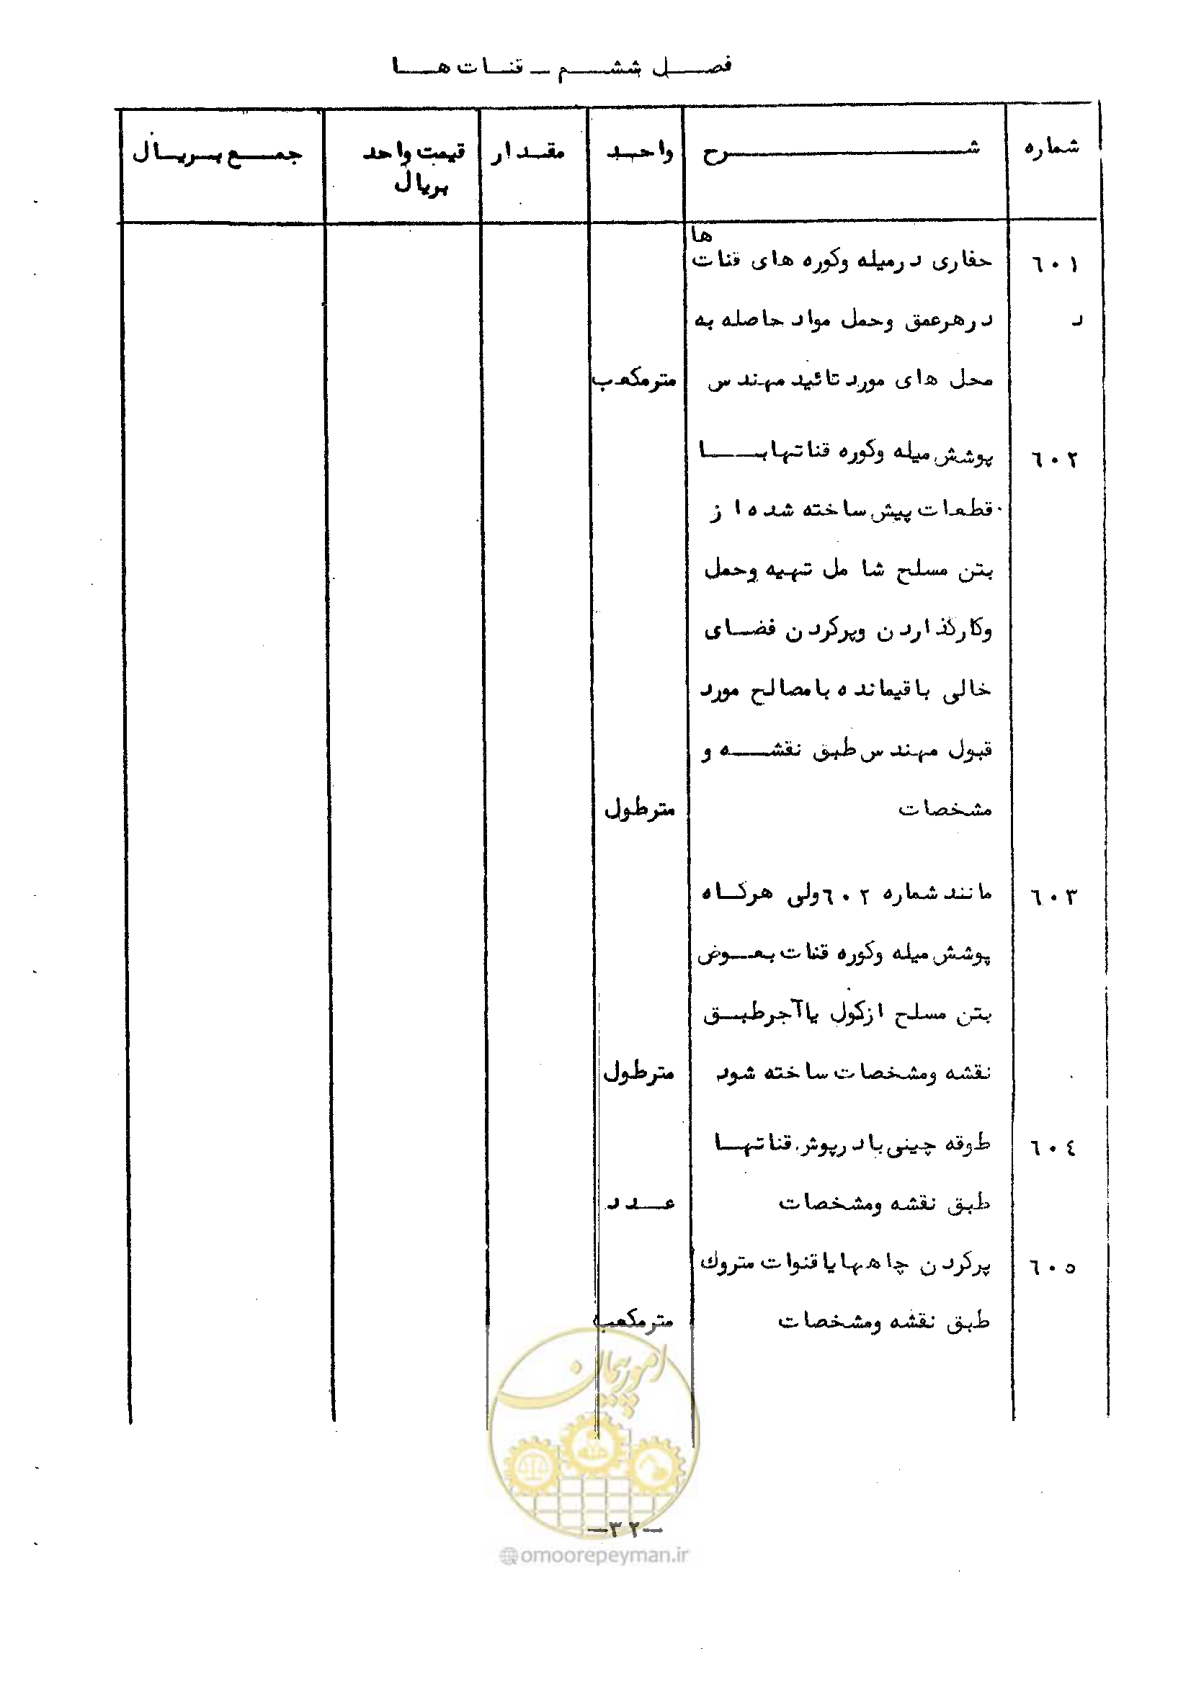 فصل ششم - قنات ها
شماره شرح واحد مقدار قیمت واحد جمع بریال
بریال
ها
٦٠١ حفاری در میله وکوره های قنات
د در هرعمق وحمل مواد حاصله به
محل های مورد تائید مهندس مترمکعب
٦٠٢ پوشش میله وکوره قناتها با
قطعات پیش ساخته شده از
بتن مسلح شامل تهیه وحمل
وکارگذاردن وپرکردن فضای
خالی باقیمانده بامصالح مورد
قبول مهندس طبق نقشه و
مشخصات مترطول
٦٠٣ مانند شماره ٦٠٢ ولی هرگاه
پوشش میله وکوره قنات بعوض
بتن مسلح ازکول یاآجرطبق
نقشه ومشخصات ساخته شود مترطول
٦٠٤ طوقه چینی با درپوش قناتها
طبق نقشه ومشخصات عدد
٦٠٥ پرکردن چاهها یا قنوات متروک
طبق نقشه ومشخصات مترمکعب
امور پیمان
-٣٢-
@omoorepeyman.ir